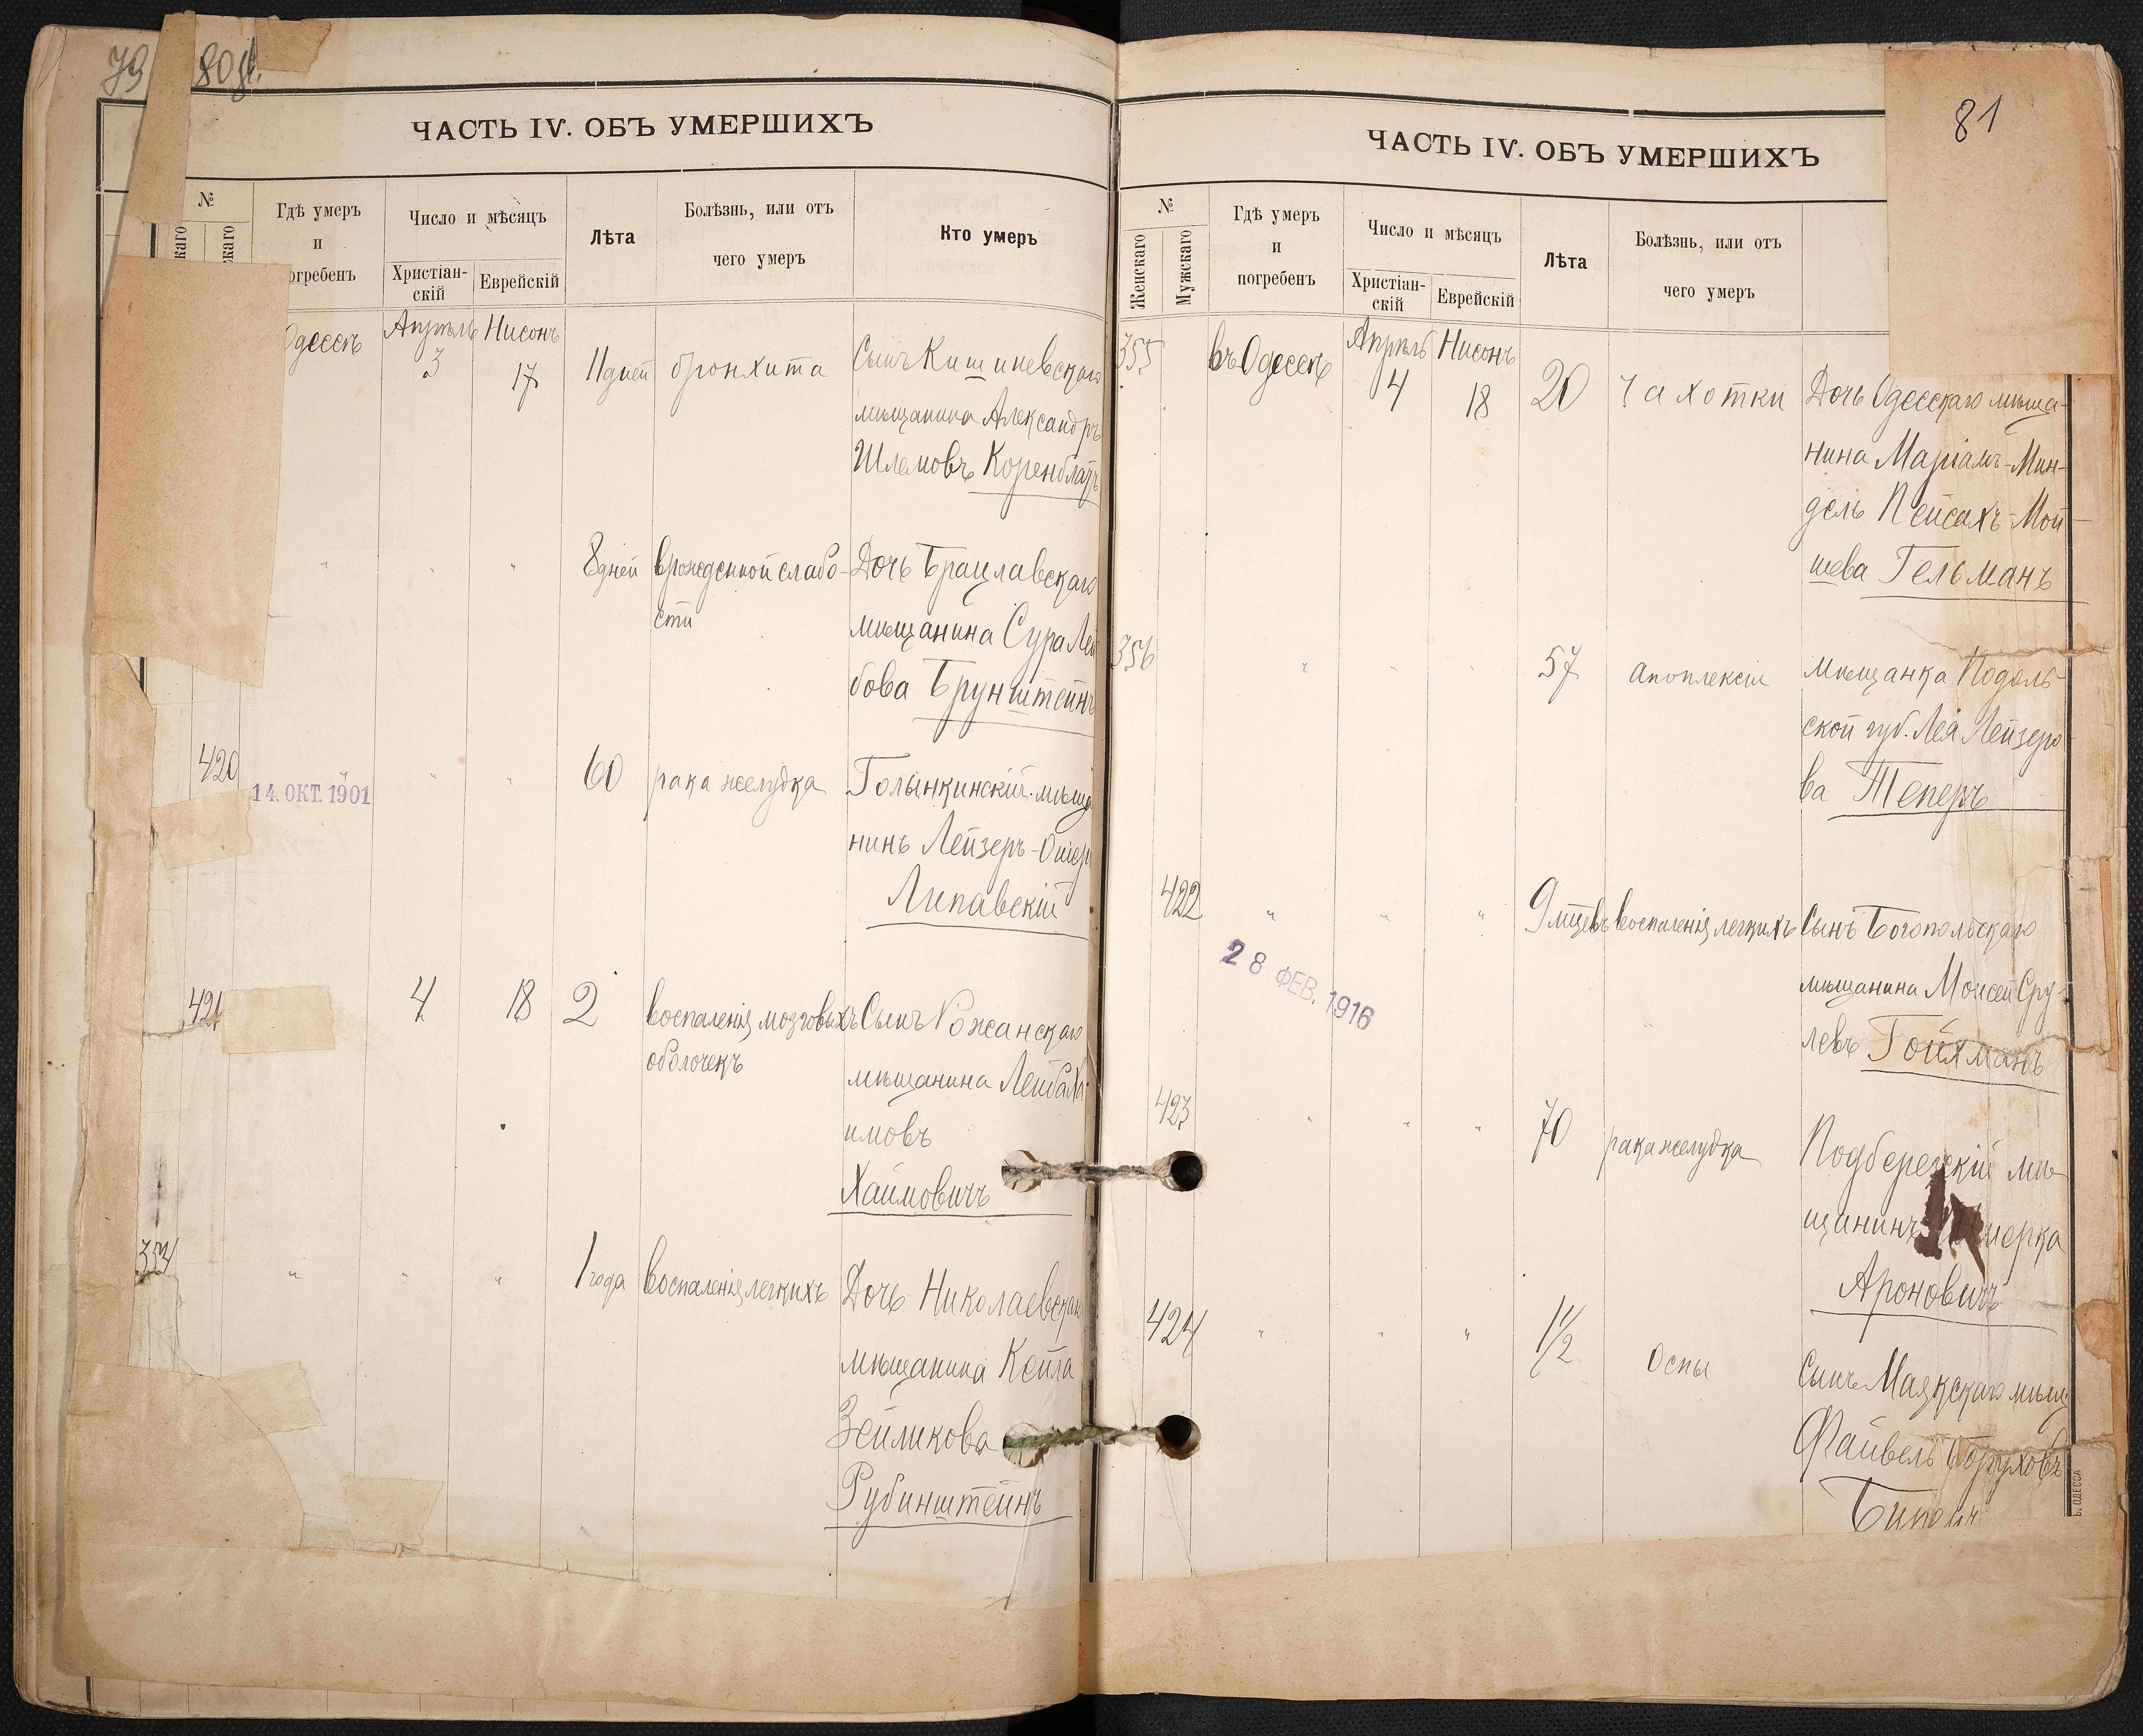 79 80
ЧАСТЬ IV. ОБЪ УМЕРШИХЪ
№
Гдѣ умеръ
и
погребенъ
Число и мѣсяцъ
Христіан-
скій
Еврейскій
Лѣта
Болѣзнь, или отъ
чего умеръ
Кто умеръ
Одессѣ
Апрѣль Нисонъ
3 17 11 дней бронхита Сынъ Кишиневскаго
мѣщанина Александръ
Шлемовъ Коренблатъ
" " " 8 дней врожденной слабо- Дочь Брацлавскаго
сти
мѣщанина Сура Лей
бова Брунштейнъ
420 " " " 60 рака желудка Голынкинскій мѣща
14. ОКТ. 1901
нинъ Лейзеръ-Ошеръ
Липавскій
421 4 18 2 воспаленія мозговыхъ Сынъ Рожанскаго
оболочекъ
мѣщанина Лейба Ха
имовъ
Хаимовичъ
354 " " " 1 года воспаленія легкихъ Дочь Николаевскаго
мѣщанина Кейла
Зейликова
Рубинштейнъ
81
ЧАСТЬ IV. ОБЪ УМЕРШИХЪ
№
Женскаго
Мужскаго
Гдѣ умеръ
и
погребенъ
Число и мѣсяцъ
Христіан-
скій
Еврейскій
Лѣта
Болѣзнь, или отъ
чего умеръ
355 въ Одессѣ Апрѣль Нисонъ
4 18 20 чахотки Дочь Одесскаго мѣща-
нина Маріамъ-Мин-
дель Пейсахъ-Мой-
шева Гельманъ
356 " " " 57 апоплексіи мѣщанка Подоль
ской губ. Лея Лейзеро
ва Теперъ
422 " " " 9 мѣцевъ воспаленія легкихъ Сынъ Богопольскаго
28 ФЕВ. 1916
мѣщанина Моисей Сру-
левъ Гойхманъ
423 " " " 70 рака желудка Подберезкій мѣ
щанинъ
Ароновичъ
424 " " " 1 1/2 оспы Сынъ Маякскаго мѣщ
Файвель Боруховъ
Ь. ОДЕССА